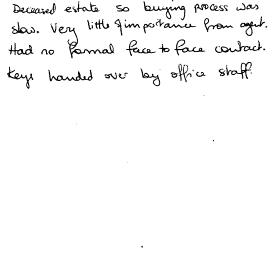 Deceased estate so buying process was
slow. Very little importance from agent.
Had no formal face to face contact.
Keys handed over by office staff.